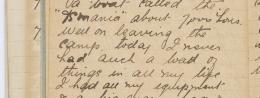 a boat called the
"Tsmania" about 7000 tons.
7 Well on leaving the
camp today I never
had such a load of
things in all my life
I had all my equipment